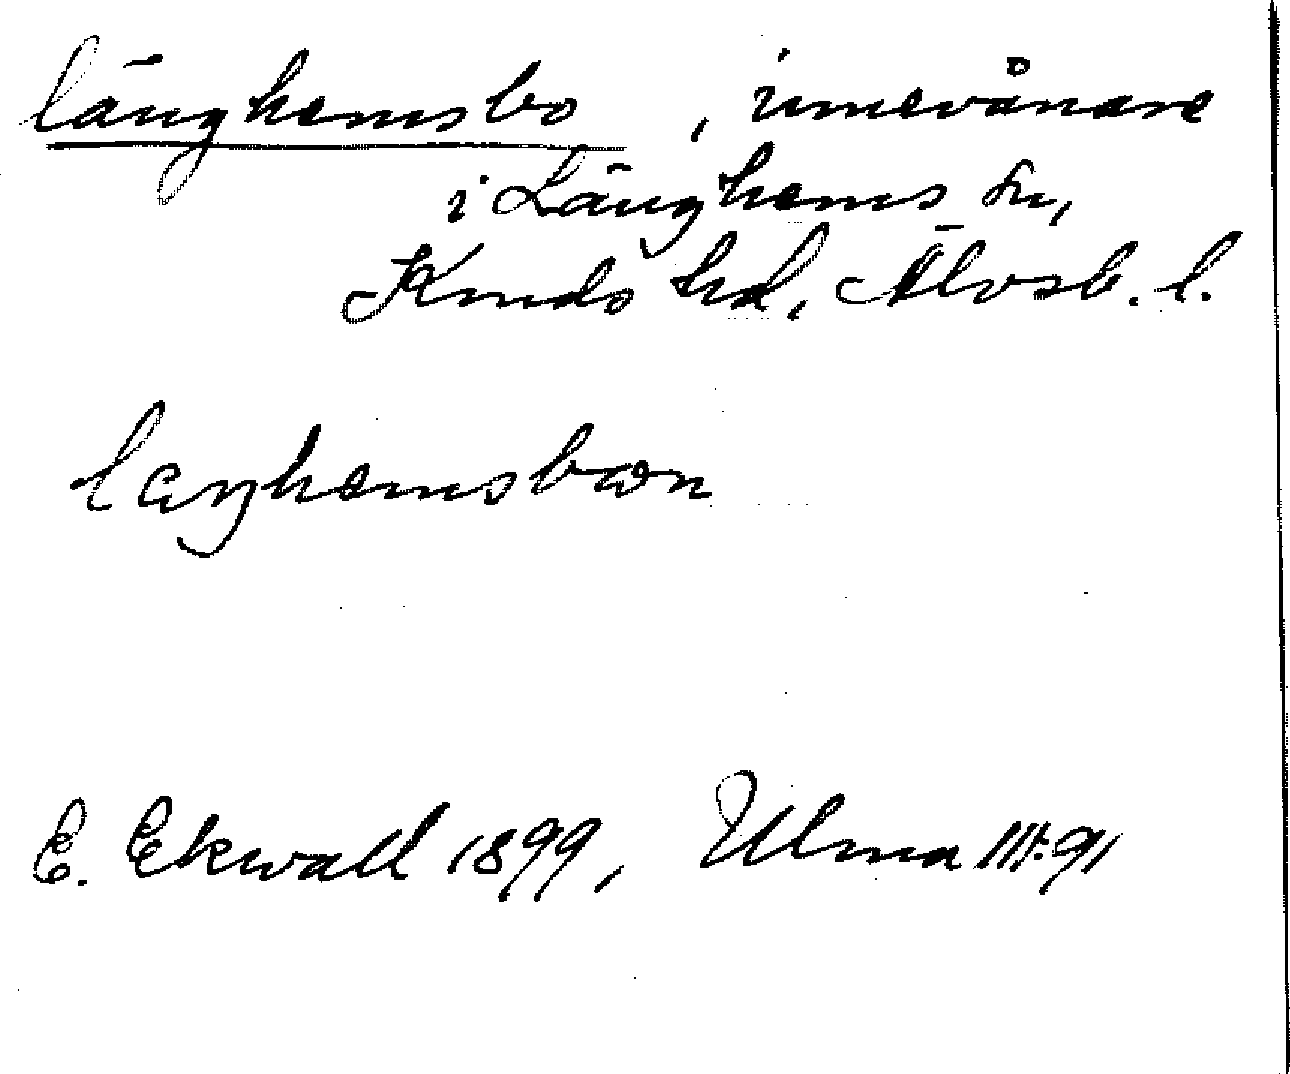 länghemsbo, innevånare
i Länghems sn,
Kinds hd, Älvsb. l.
laŋhemsboɷn
E. Ekwall 1899, Ulma 111:91